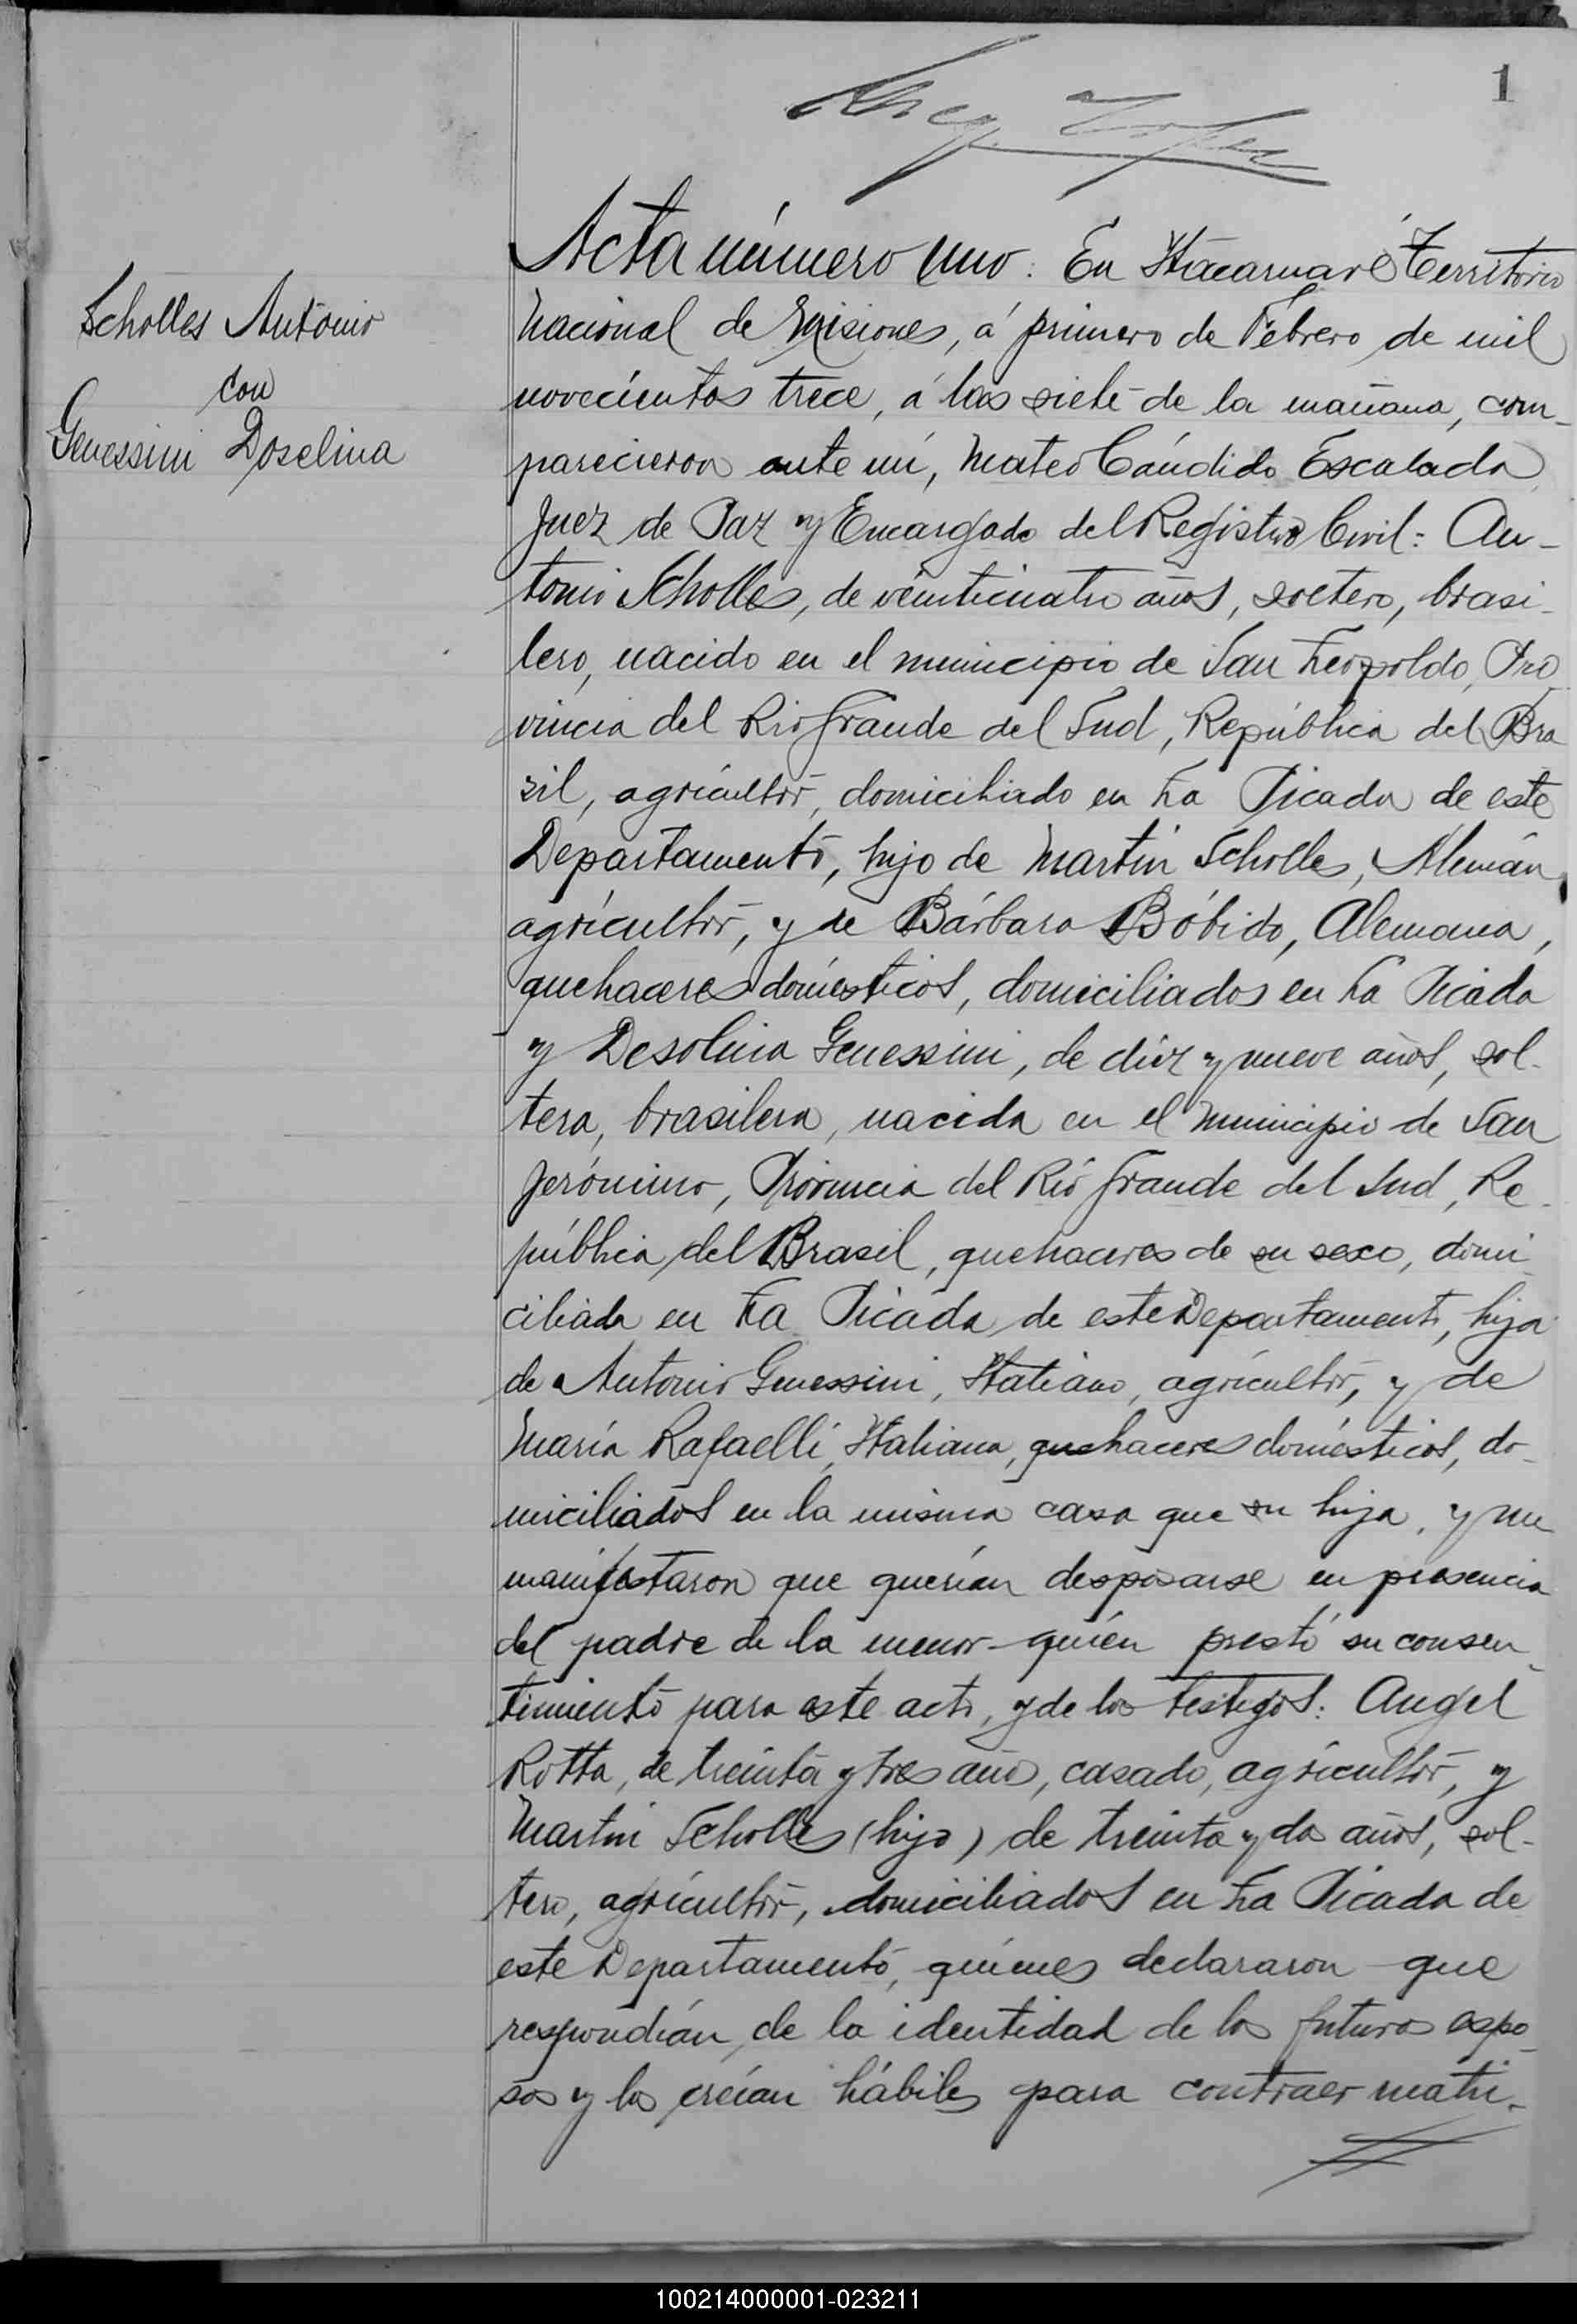 1
Acta número uno: En Itacaruaré Territorio
Scholles Antonio
con
Genessini Doselina
Nacional de Misiones, á primero de Febrero de mil
novecientos trece, á las siete de la mañana, com-
parecieron ante mí, Mateo Cándido Escalada
Juez de Paz y Encargado del Registro Civil: An-
tonio Scholles, de veinticuatro años, soltero, brasi-
lero, nacido en el municipio de San Leopoldo, Pro
vincia del Rio Grande del Sud, República del Bra
sil, agricultor, domiciliado en La Picada de este
Departamento, hijo de Martín Scholles, Alemán,
agricultor, y de Bárbara Bóbido, Alemana,
quehaceres domésticos, domiciliados en La Picada
y Desolina Genessini, de diez y nueve años, sol-
tera, brasilera, nacida en el municipio de San
Jerónimo, Provincia del Rió Grande del Sud, Re-
pública del Brasil, quehaceres de su sexo, domi
ciliada en La Picada de este Departamento, hija
de Antonio Genessini, Italiano, agricultor, y de
María Rafaelli, Italiana, quehaceres domésticos, do-
miciliados en la misma casa que su hija, y me
manifestaron que querían desposarse en presencia
del padre de la menor quién prestó su consen-
timiento para este acto, y de los testigos: Angel
Rotta, de treinta y tres años, casado, agricultor, y
Martin Scholles (hijo) de treinta y dos años, sol-
tero, agricultor, domiciliados en La Picada de
este Departamento, quienes declararon que
respondían de la identidad de los futuros espo-
sos y los creían hábiles para contraer matri-
100214000001-023211